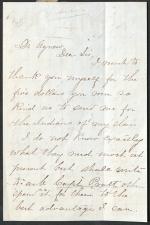 Dr Agnew,
Dear Sir,
I wish to
thank you myself for the
five dollars you were so
kind as to send me for
the Indians of my class.
I do not know exactly
what they need most at
present but shall
Capt Pratt
spend it for them to the
best advantage I can.